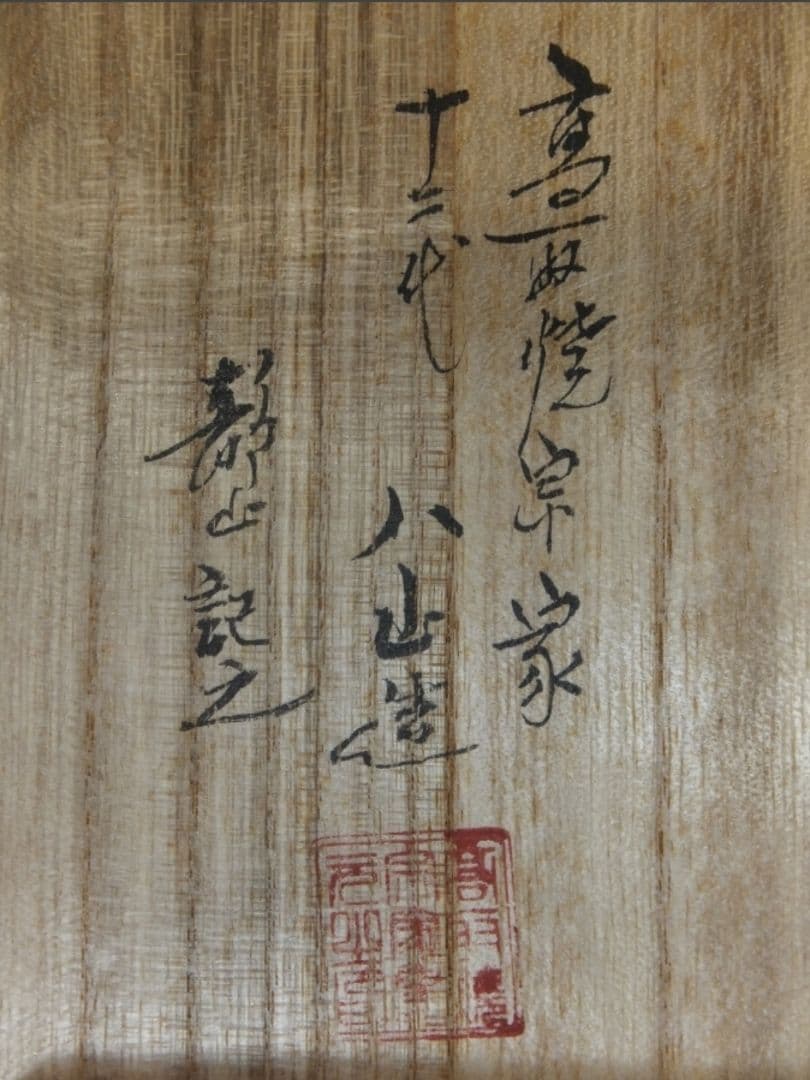 高取焼宗家
十二代 八山造
靜山記之